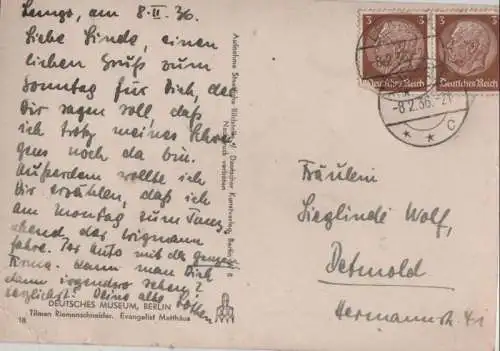 Lemgo, am 8.II.36.
Liebe Linde, einen
lieben Gruß zum
Sonntag für Dich, der
Dir sagen soll, daß
ich trotz meines
noch da bin.
Außerdem wollte ich
Dir erzählen, daß ich
am Montag zum Tanz-
abend der Wigmann
fahre. Per Auto mit der ganzen
Firma. Kann man Dich
dann irgendwo sehen?
Deine alte
DEUTSCHES MUSEUM, BERLIN
18 Tilman Riemenschneider. Evangelist Matthäus
Deutscher Kunstverlag, Berlin W 8
Nachdruck verboten
3 3
Deutsches Reich Deutsches Reich
-8.2.36.-21
* * c
Fräulein
Sieglinde Wolf,
Detmold
Hermannstr. 41